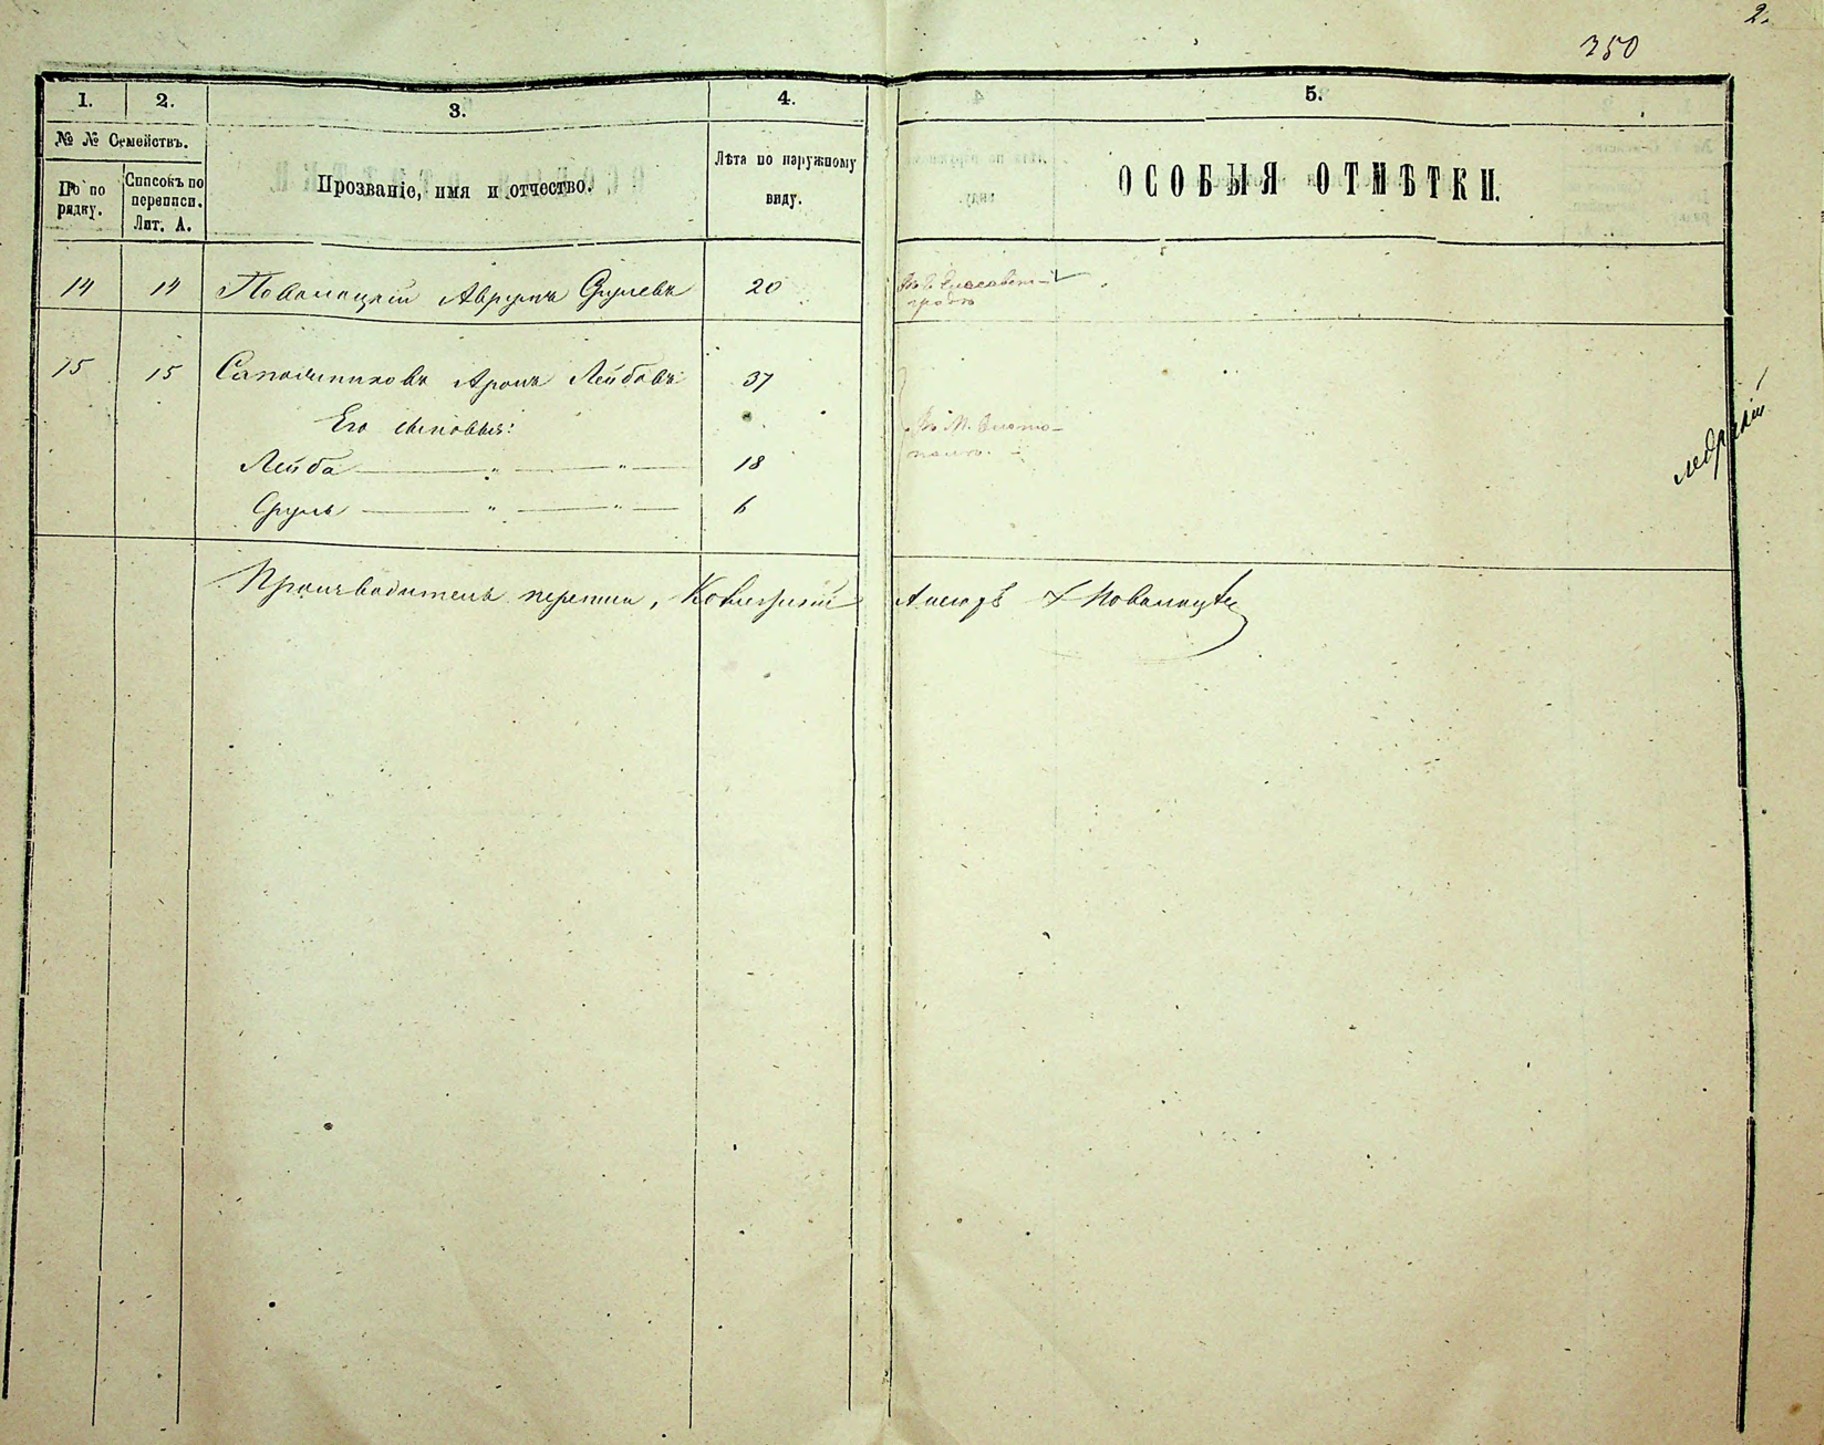 2.
350
1. 2. 3. 4. 5.
№ № Семействъ.
По по рядку.
Списокъ по переписи. Лит. А.
Прозваніе, имя и отчество.
Лѣта по наружному виду.
ОСОБЫЯ ОТМѢТКИ.
14 14 Поволоцкій Аврумъ Срулевъ 20 Въ г. Елисавет-
градѣ
15 15 Сапожниковъ Аронъ Лейбовъ 37
Его сыновья: Въ м.
Лейба — " — " — 18
Сруль — " — " — 6
Производитель переписи,